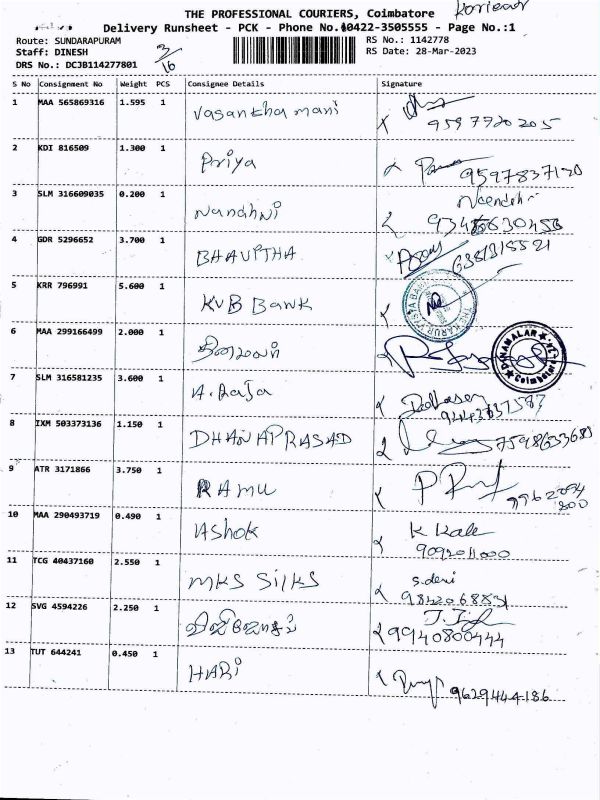 THE PROFESSIONAL COURIERS, Coimbatore
Delivery Runsheet - PCK - Phone No.:0422-3505555 - Page No.:1
Route: SUNDARAPURAM
RS No.: 1142778
Staff: DINESH
RS Date: 28-Mar-2023
DRS No.: DCJB114277801
3/16
S No Consignment No Weight PCS Consignee Details Signature
1 MAA 565869316 1.595 1 Vasantha mani
9597720205
2 KDI 816509 1.300 1 Priya
9597837120
3 SLM 316609035 0.200 1 Nandhni
4 GDR 5296652 3.700 1 BHAVITHA
6381315521
5 KRR 796991 5.600 1 KVB Bank
6 MAA 299166499 2.000 1 தினமலர்
DINAMALAR
Coimbatore
7 SLM 316581235 3.600 1 A. Raja
8 IXM 503373136 1.150 1 DHANAPRASAD
9 ATR 3171866 3.750 1 RAMU
10 MAA 290493719 0.490 1 Ashok K Kala
9092011000
11 TCG 40437160 2.550 1 MKS SILKS S. devi
9842068831
12 SVG 4594226 2.250 1
9940800444
13 TUT 644241 0.450 1 HARI
9629444186